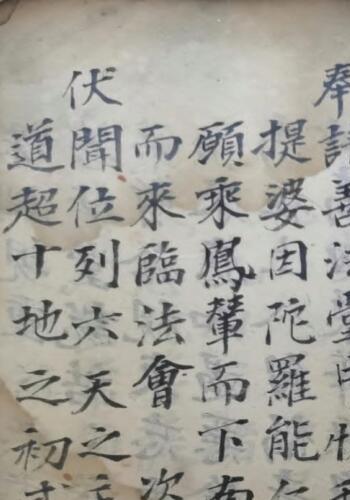 奉請善法堂中
提婆因陀羅能
願乘鳳輦而下
而來臨法會 次
伏聞位列六天之
道超十地之初